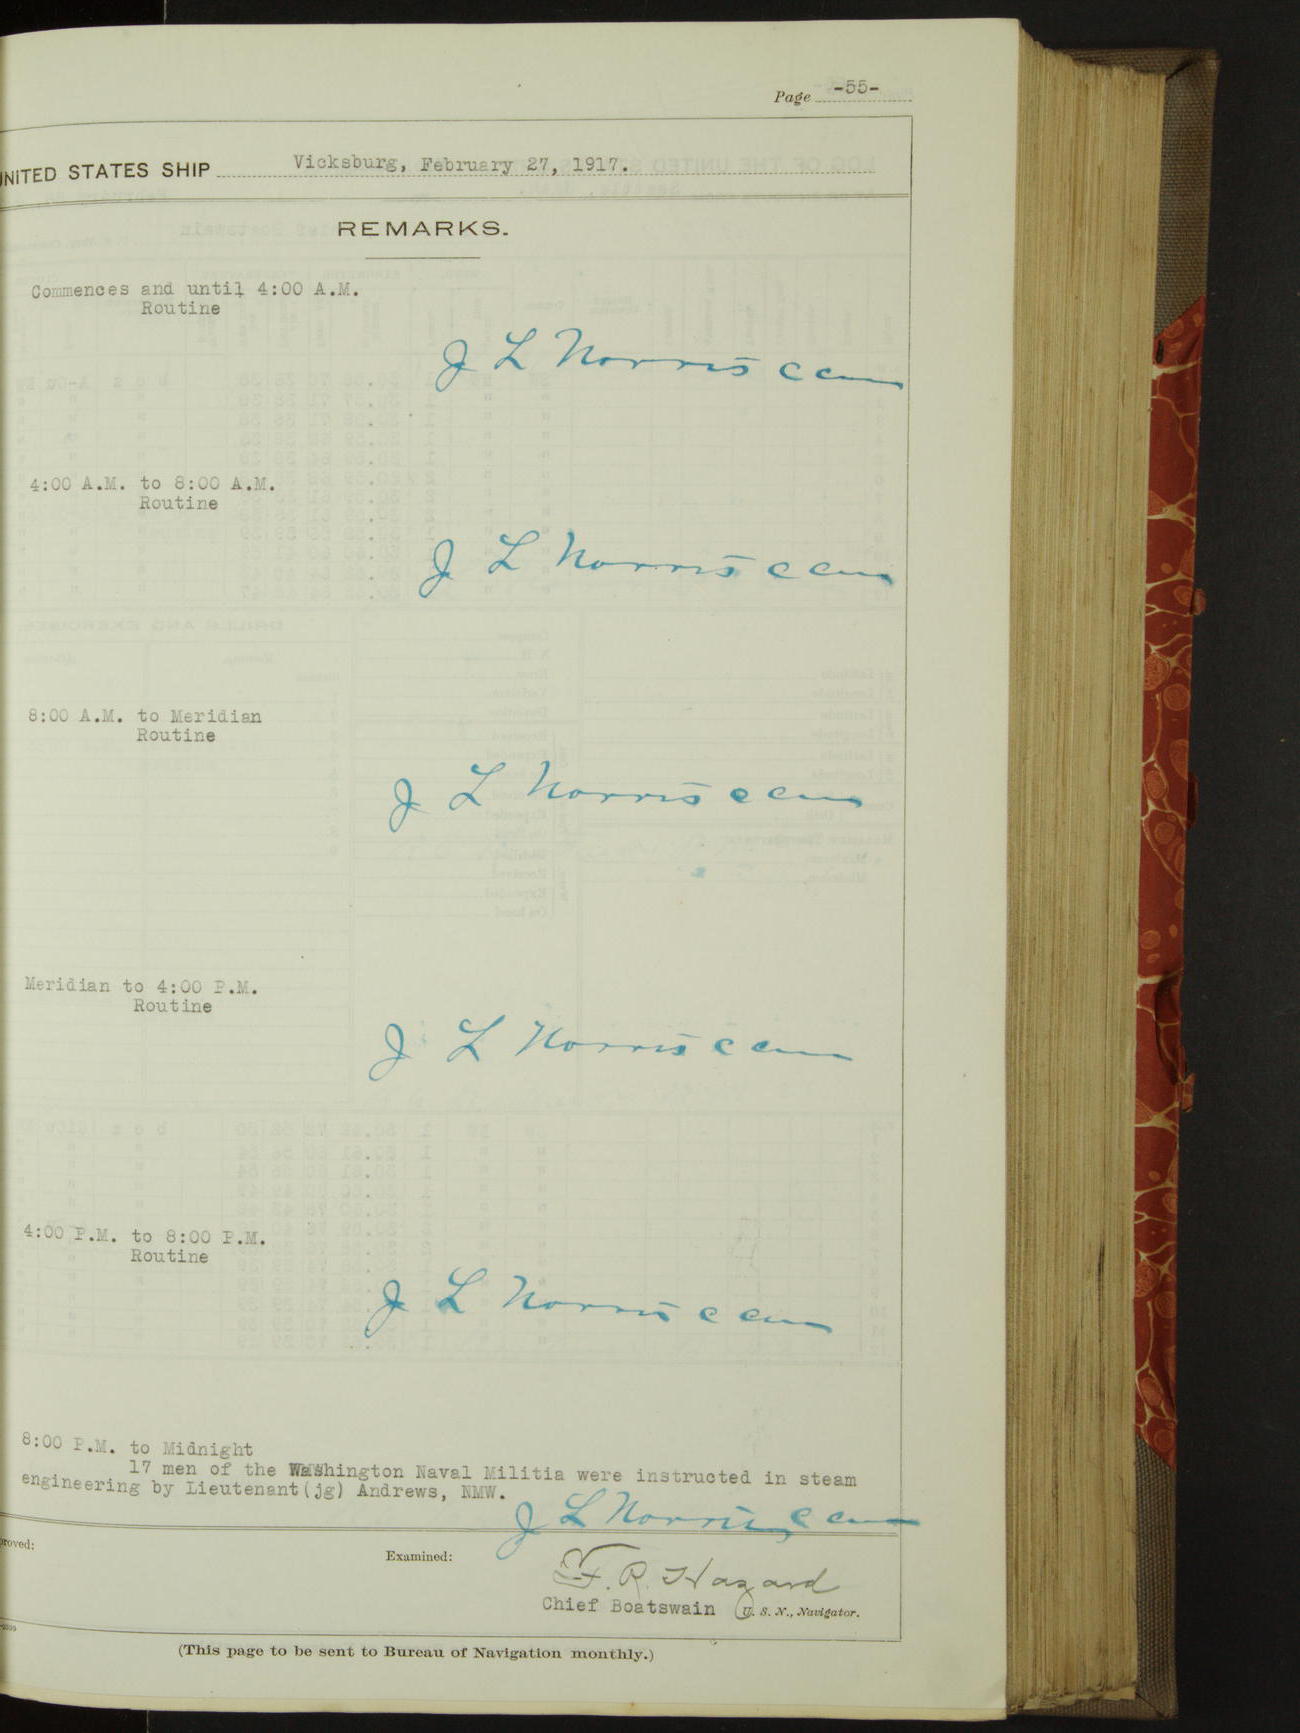 Page -55-
UNITED STATES SHIP Vicksburg, February 27, 1917.
REMARKS.
Commences and until 4:00 A.M.
Routine
J L Norris CCM
4:00 A.M. to 8:00 A.M.
Routine
J L Norris CCM
8:00 A.M. to Meridian
Routine
J L Norris CCM
Meridian to 4:00 P.M.
Routine
J L Norris CCM
4:00 P.M. to 8:00 P.M.
Routine
J L Norris CCM
8:00 P.M. to Midnight
17 men of the Washington Naval Militia were instructed in steam
engineering by Lieutenant(jg) Andrews, NMW.
J L Norris CCM
proved:
Examined:
F. R. Hazard
Chief Boatswain U. S. N., Navigator.
(This page to be sent to Bureau of Navigation monthly.)